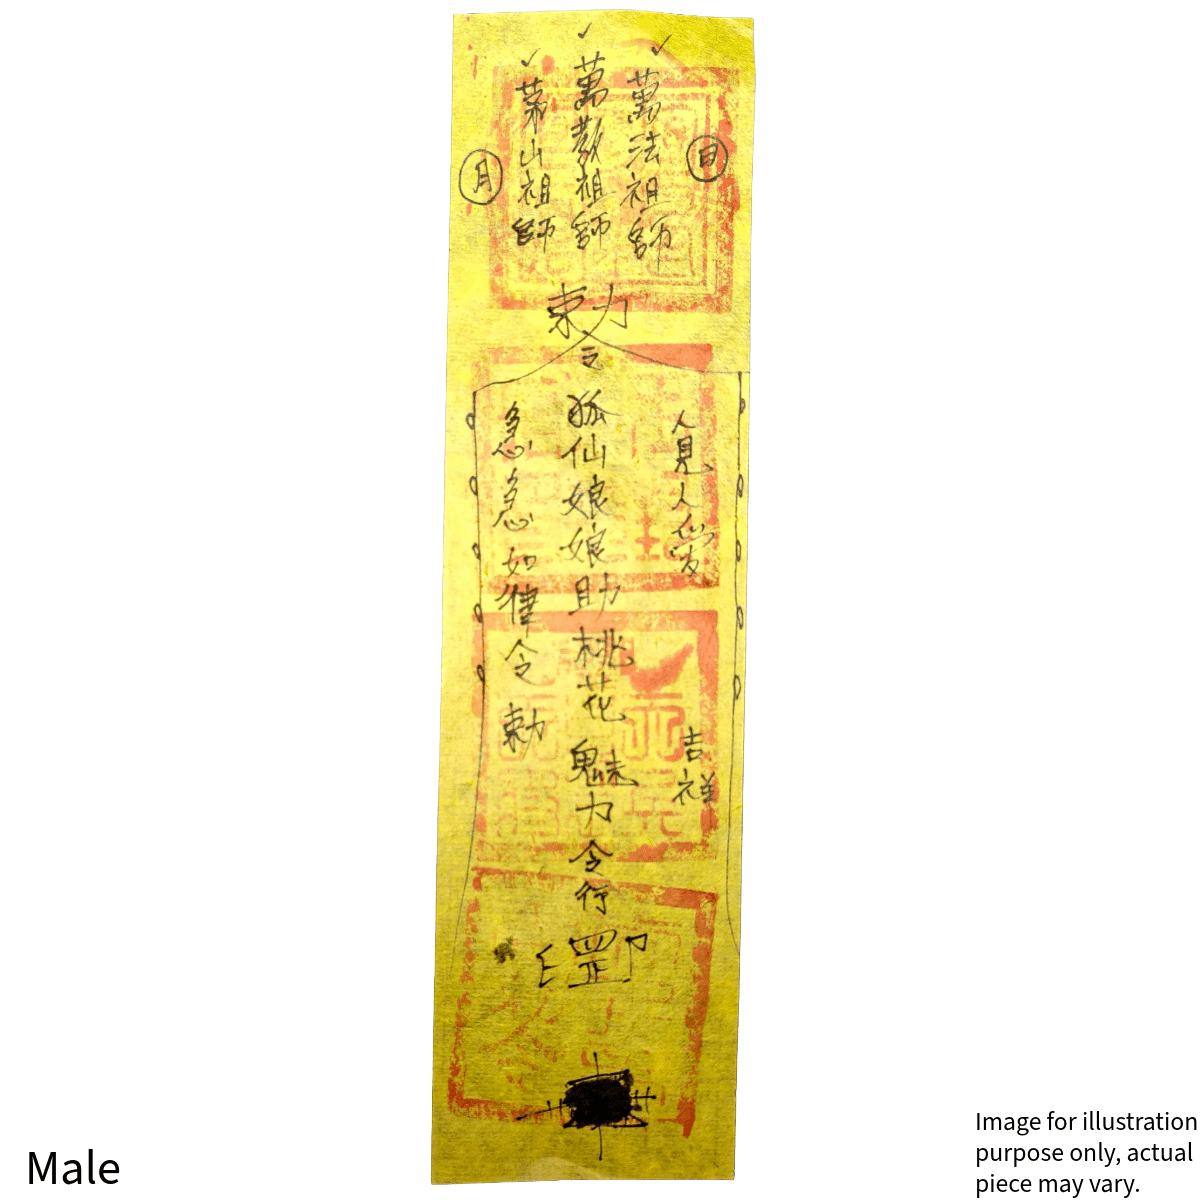 日
萬法祖師
萬教祖師
茅山祖師
月
敕令
人見人愛
吉祥
狐仙娘娘助桃花魅力令行
罡印
急急如律令敕
Male
Image for illustration
purpose only, actual
piece may vary.